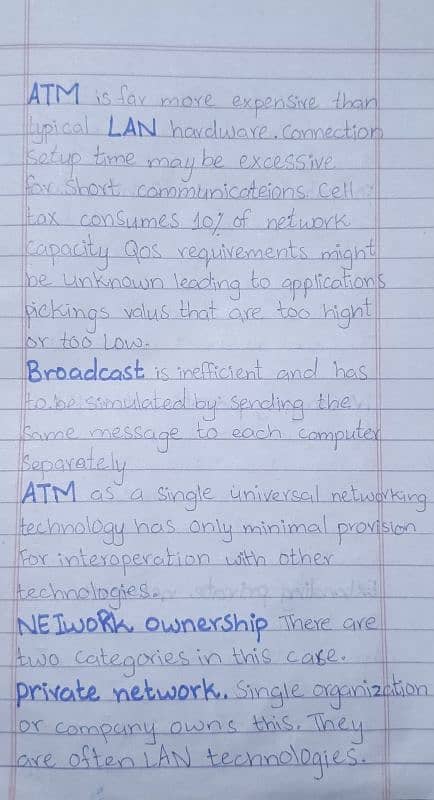 ATM is far more expensive than
typical LAN hardware. Connection
setup time may be excessive
for short communicateions. Cell
tax consumes 10% of network
capacity Qos requirements might
be unknown leading to applications
pickings valus that are too hight
or too Low.
Broadcast is inefficient and has
to be simulated by sending the
same message to each computer
separately
ATM as a single universal networking
technology has only minimal provision
For interoperation with other
technologies.
NETwoRK ownership There are
two categories in this case.
private network. Single organization
or company owns this. They
are often LAN technologies.